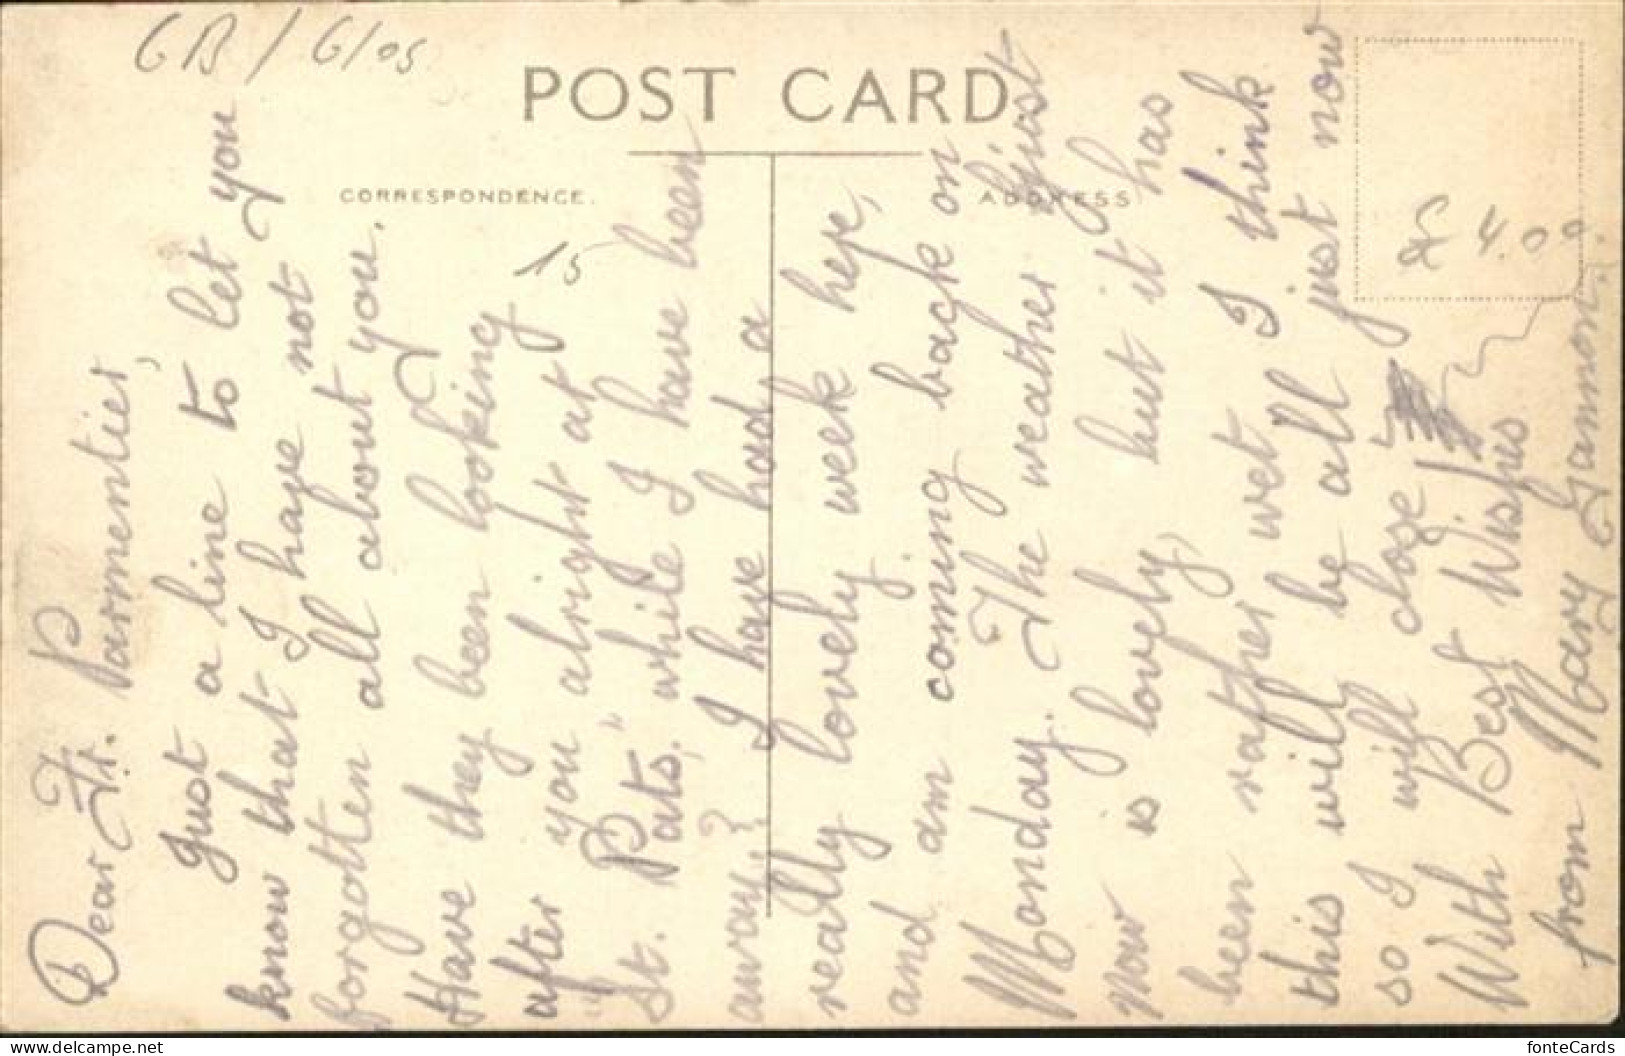 GB / Glos
POST CARD
CORRESPONDENCE.
ADDRESS
15
£ 4.00
Dear Fr. Parmentier,
Just a line to let you
know that I have not
forgotten all about you.
Have they been looking
after you alright at
"St. Pats," while I have been
away? I have had a
really lovely week here,
and am coming back on
Monday. The weather just
now is lovely, but it has
been rather wet I think
this will be all just now
so I will close
With Best Wishes
from Mary Gammon.
delcampe.net
fonteCards